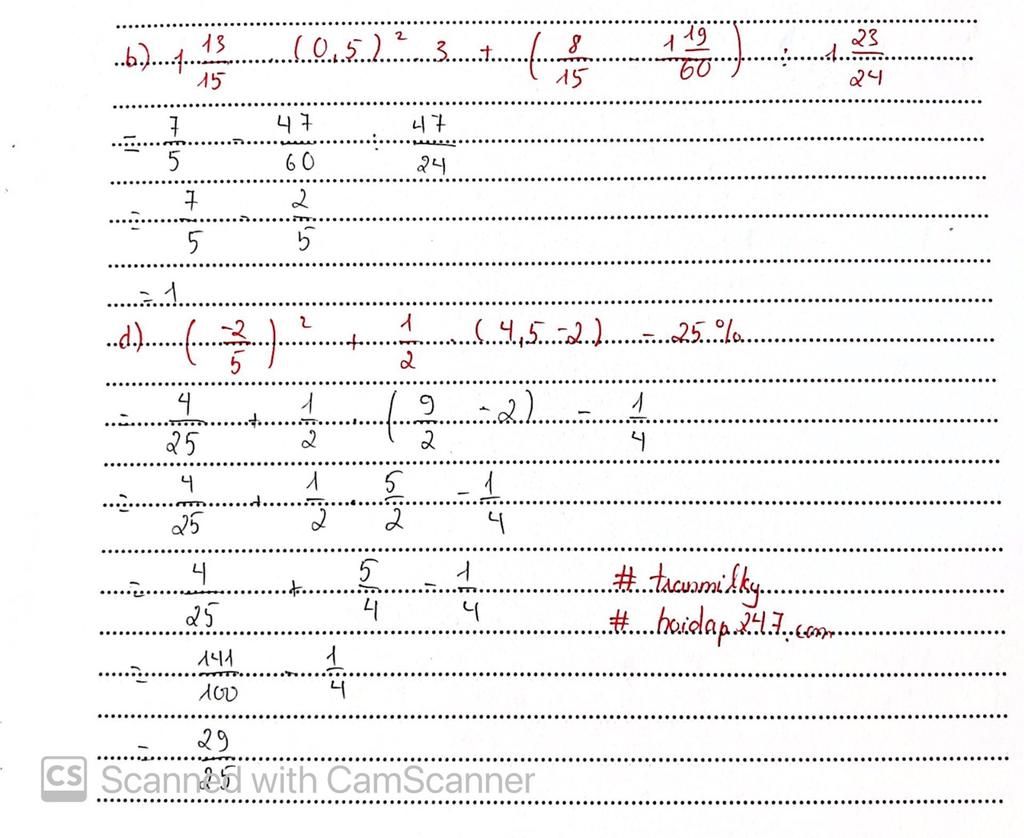 b) 1 13/15 . (0,5)² . 3 + ( 8/15 - 1 19/60 ) : 1 23/24
= 7/5 - 47/60 : 47/24
= 7/5 - 2/5
= 1
d) ( -2/5 )² + 1/2 . ( 4,5 - 2 ) - 25%
= 4/25 + 1/2 . ( 9/2 - 2 ) - 1/4
= 4/25 + 1/2 . 5/2 - 1/4
= 4/25 + 5/4 - 1/4
# tranmilky
# hoidap247.com
= 141/100 - 1/4
= 29/25
CS Scanned with CamScanner